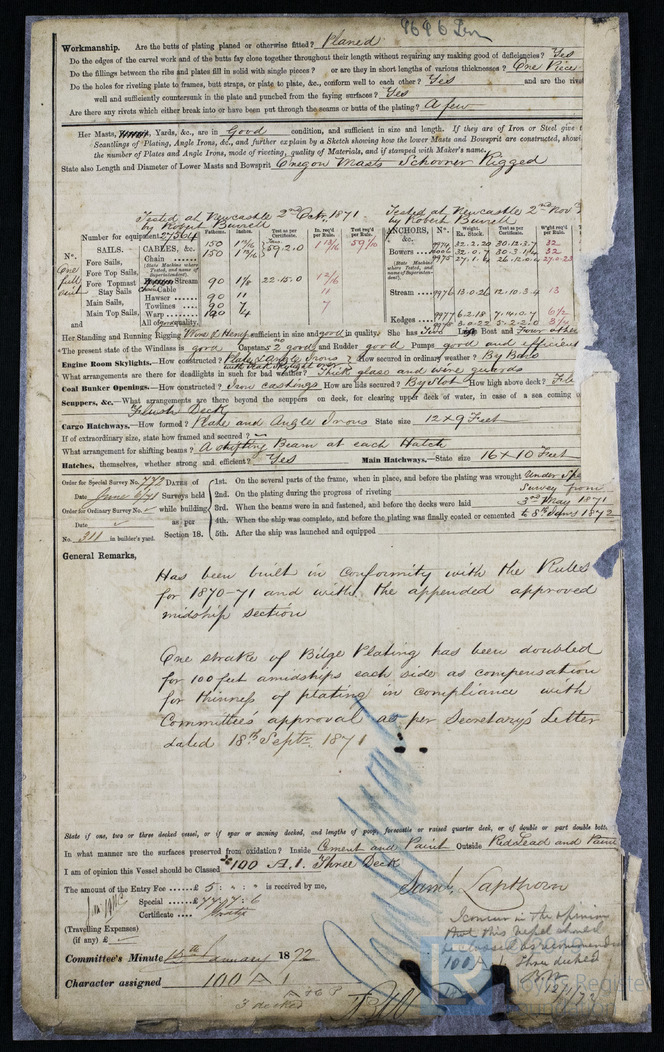 8686 Iron
Workmanship. Are the butts of plating planed or otherwise fitted? Planed
Do the edges of the carvel work and of the butts fay close together throughout their length without requiring any making good of deficiencies? Yes
Do the fillings between the ribs and plates fill in solid with single pieces? or are they in short lengths of various thicknesses? One Piece
Do the holes for riveting plate to frames, butt straps, or plate to plate, &c., conform well to each other? Yes and are the rivet
well and sufficiently countersunk in the plate and punched from the faying surfaces? Yes
Are there any rivets which either break into or have been put through the seams or butts of the plating? A few
Her Masts, Yards, &c., are in Good condition, and sufficient in size and length. If they are of Iron or Steel give
Scantlings of Plating, Angle Irons, &c., and further explain by a Sketch showing how the lower Masts and Bowsprit are constructed, showing
the number of Plates and Angle Irons, mode of riveting, quality of Materials, and if stamped with Maker's name.,
State also Length and Diameter of Lower Masts and Bowsprit Oregon Masts Schooner Rigged
Tested at Newcastle 2nd Oct. 1871 Tested at Newcastle 2nd Nov
by Robert Burrell by Robert Burrell
Number for equipment 27564 Fathoms. Inches. Test as per Certificate. In. req'd per Rule. Test req'd per Rule. ANCHORS, &c. Nº. Weight. Ex. Stock. Test as per Certificate. W'ght req'd per Rule.
Nº. SAILS. CABLES, &c. 150
Fore Sails, Chain 150 59.2.0 59 7/10 Bowers 9774 32.2.20 30.12.3.7 32
Fore Top Sails, (State Machine where Tested, and name of Superintendent). 32
One full suit Fore Topmast Stay Sails Stream Cable 90 1 1/8 22.15.0 9975 27.1.
Main Sails, Hawser 90 11 11 Stream 9976 13.0.26 12.10.3.4 13
Main Top Sails, Towlines 90 7 7
and Warp 190 4 Kedges 9977 6.2.18 7.14.0.7 6 1/2
All of good quality. 3.0.22 5.2.2.0 3 1/4
Her Standing and Running Rigging Wire & Hemp sufficient in size and good in quality. She has Two Long Boat and Four other
The present state of the Windlass is good Capstan 2 good and Rudder good Pumps good and efficient
Engine Room Skylights.—How constructed? Plate & Angle Irons How secured in ordinary weather? By Bars
What arrangements are there for deadlights in such for bad weather? Thick glass and wire guards
Coal Bunker Openings.—How constructed? Iron castings How are lids secured? By Slot How high above deck?
Scuppers, &c.—What arrangements are there beyond the scuppers on deck, for clearing upper deck of water, in case of a sea coming
Flush Deck
Cargo Hatchways.—How formed? Plate and Angle Irons State size 12 x 9 Feet
If of extraordinary size, state how framed and secured?
What arrangement for shifting beams? A shifting Beam at each Hatch
Hatches, themselves, whether strong and efficient? Yes Main Hatchways.—State size 16 x 10 Feet
Order for Special Survey No. 773 Dates of 1st. On the several parts of the frame, when in place, and before the plating was wrought Under Spe
Date June 6/71 Surveys held 2nd. On the plating during the progress of riveting Survey from
Order for Ordinary Survey No. while building 3rd. When the beams were in and fastened, and before the decks were laid 3rd May 1871
Date as per 4th. When the ship was complete, and before the plating was finally coated or cemented to 8th Jany 1872
No. 311 in builder's yard. Section 18. 5th. After the ship was launched and equipped
General Remarks,
Has been built in conformity with the Rules
for 1870-71 and with the appended approved
midship section
One strake of Bilge Plating has been doubled
for 100 feet amidships each side as compensation
for thinness of plating in compliance with
Committee's approval as per Secretary's Letter
dated 18th Septr 1871
State if one, two or three decked vessel, or if spar or awning decked, and lengths of poop, forecastle or raised quarter deck, or of double or part double bott.
In what manner are the surfaces preserved from oxidation? Inside Cement and Paint Outside Red Lead and Paint
I am of opinion this Vessel should be Classed 100 A.1. Three Deck
The amount of the Entry Fee ...... £ 5 : " : " is received by me, Saml. Lapthorn
Special ...... £ 77 : 17 : 6
Certificate ... Gratis
(Travelling Expenses)
(if any) £
I concur in the opinion
that this vessel
be classed as recommended
100 A 1 Three decked
Committee's Minute January 1872
Character assigned 100 A 1
3 decked